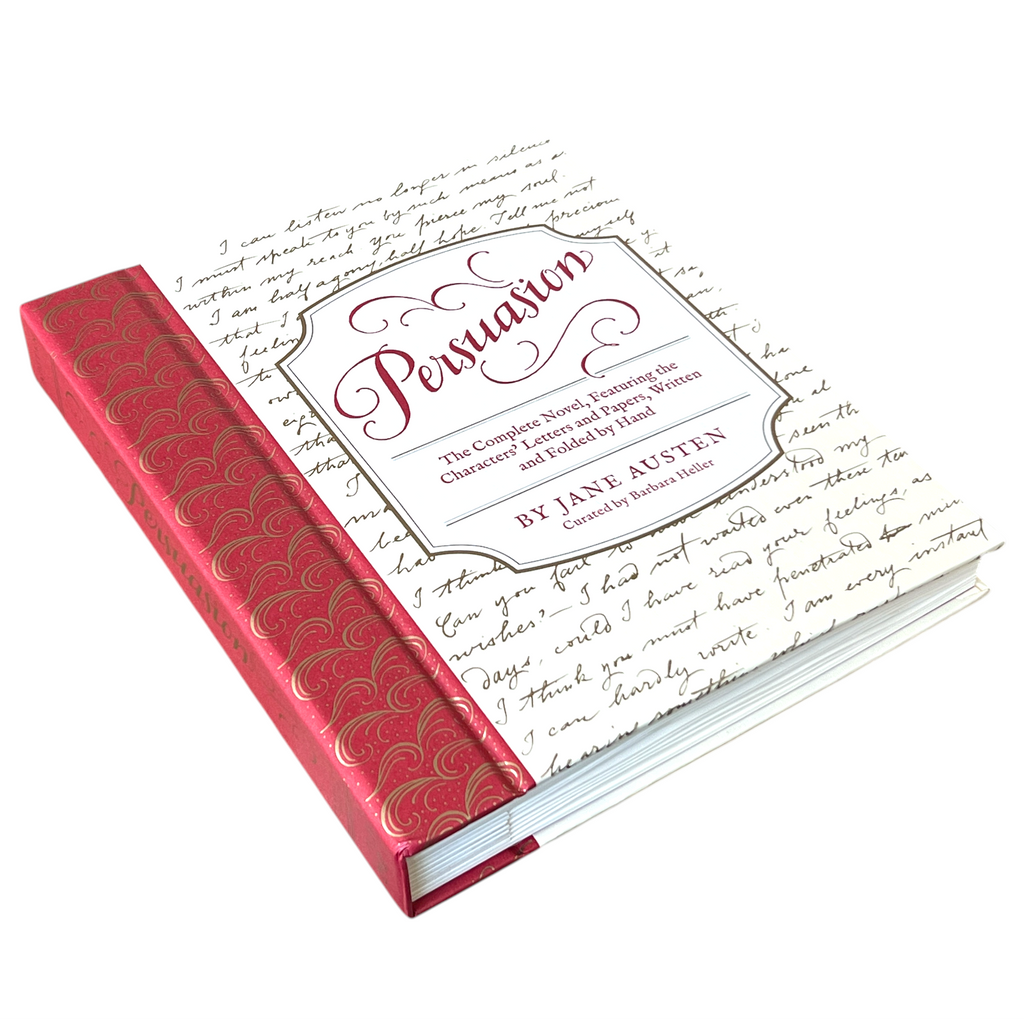 I can listen no longer in silence
I must speak to you by such means as a
within my reach you pierce my soul.
I am half agony, half hope. Tell me not
that I precious
feelin myself
to
own
eig
tha
that
I
ha
I think understood my
Can you fail to seen th
wishes? — I had not waited even these ten
days, could I have read your feelings, as
I think you must have penetrated min
I can hardly write. I am every instant
hearing something which
Persuasion
The Complete Novel, Featuring the
Characters' Letters and Papers, Written
and Folded by Hand
BY JANE AUSTEN
Curated by Barbara Heller
Persuasion